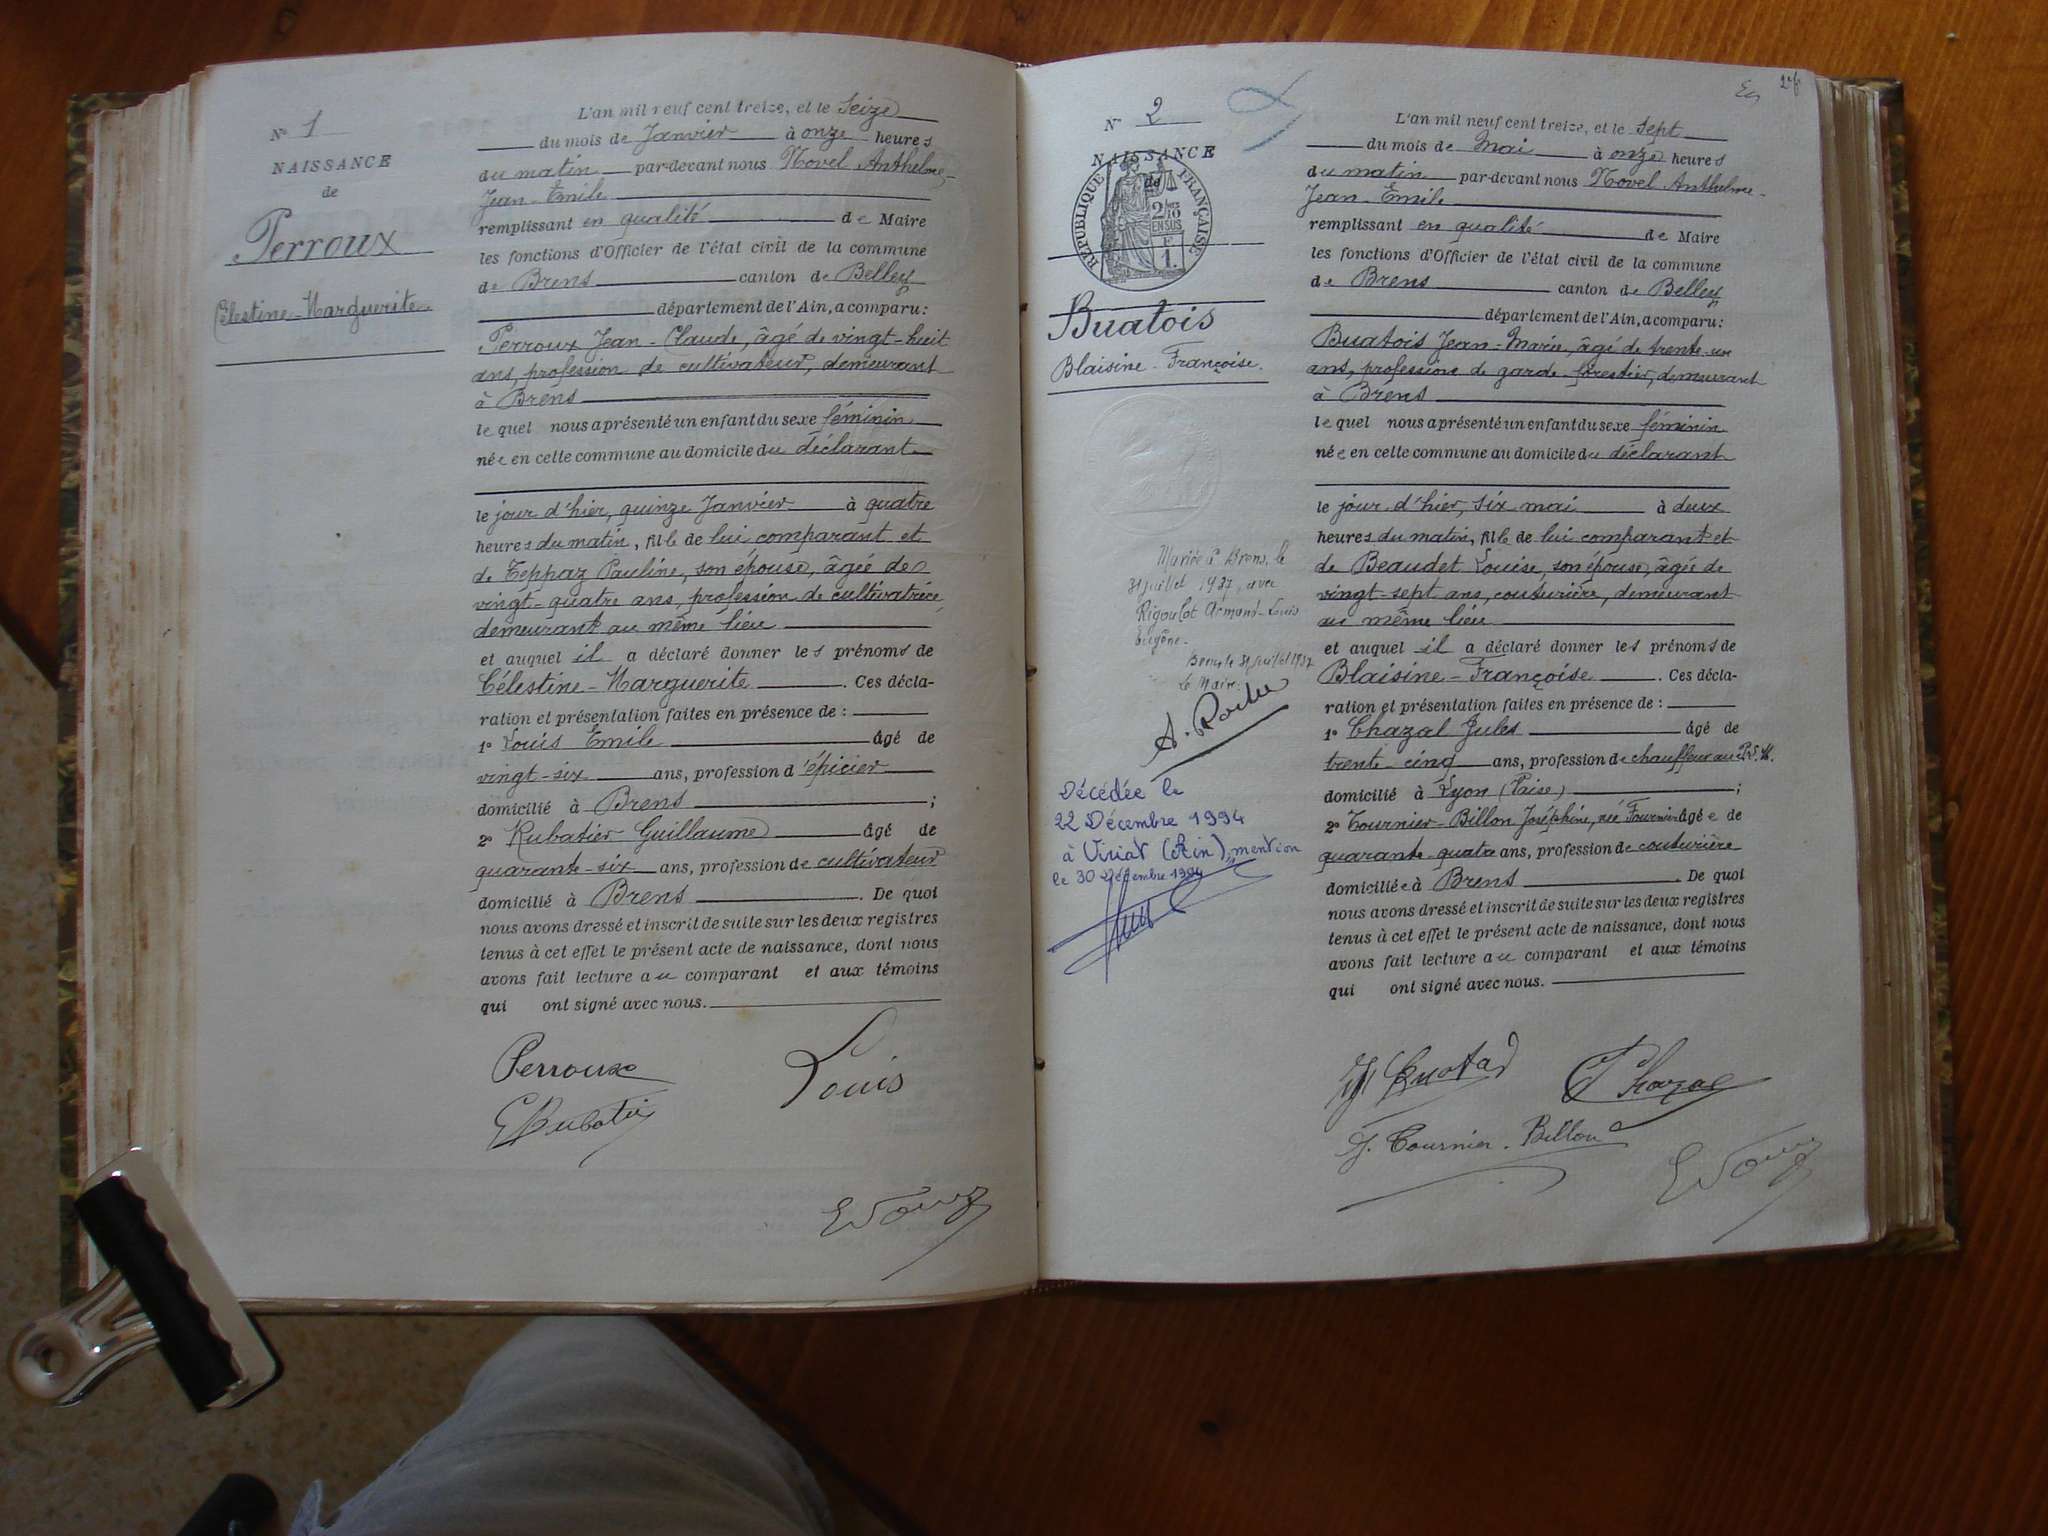 N° 1
NAISSANCE
de
Perroux
Célestine-Marguerite
L'an mil neuf cent treize, et le Seize
du mois de Janvier à onze heures
du matin par-devant nous Novel Anthelme-
Jean-Emile
remplissant en qualité de Maire
les fonctions d'Officier de l'état civil de la commune
de Brens canton de Belley
département de l'Ain, a comparu:
Perroux Jean-Claude, âgé de vingt-huit
ans, profession de cultivateur, demeurant
à Brens
lequel nous a présenté un enfant du sexe féminin
née en cette commune au domicile du déclarant
le jour d'hier, quinze Janvier à quatre
heures du matin, fille de lui comparant et
de Teppaz Pauline, son épouse, âgée de
vingt-quatre ans, profession de cultivatrice,
demeurant au même lieu
et auquel il a déclaré donner les prénoms de
Célestine-Marguerite. Ces décla-
ration et présentation faites en présence de :
1° Louis Emile âgé de
vingt-six ans, profession d'épicier
domicilié à Brens ;
2° Rubatier Guillaume âgé de
quarante-six ans, profession de cultivateur
domicilié à Brens. De quoi
nous avons dressé et inscrit de suite sur les deux registres
tenus à cet effet le présent acte de naissance, dont nous
avons fait lecture au comparant et aux témoins
qui ont signé avec nous.
Perroux
Louis
N° 2
NAISSANCE
de
RÉPUBLIQUE FRANÇAISE
2/10
EN SUS
1.
Buatois
Blaisine-Françoise.
Mariée à Brens, le
31 juillet 1937, avec
Rigoulot Armant-Louis
Eugène.
Brens le 31 juillet 1937
Le Maire:
Décédée le
22 Décembre 1994
à Viriat (Ain), mention
le 30 Décembre 1994
L'an mil neuf cent treize, et le Sept
du mois de Mai à onze heures
du matin par-devant nous Novel Anthelme-
Jean-Emile
remplissant en qualité de Maire
les fonctions d'Officier de l'état civil de la commune
de Brens canton de Belley
département de l'Ain, a comparu:
Buatois Jean-Marie, âgé de trente-un
ans, profession de garde forestier, demeurant
à Brens
lequel nous a présenté un enfant du sexe féminin
née en cette commune au domicile du déclarant
le jour d'hier, six mai à deux
heures du matin, fille de lui comparant et
de Beaudet Louise, son épouse, âgée de
vingt-sept ans, couturière, demeurant
au même lieu
et auquel il a déclaré donner les prénoms de
Blaisine-Françoise. Ces décla-
ration et présentation faites en présence de :
1° Chazal Jules âgé de
trente-cinq ans, profession de chauffeur au
domicilié à Lyon (Vaise) ;
2° Tournier-Billon Joséphine, née Fournier âgée de
quarante-quatre ans, profession de couturière
domiciliée à Brens. De quoi
nous avons dressé et inscrit de suite sur les deux registres
tenus à cet effet le présent acte de naissance, dont nous
avons fait lecture au comparant et aux témoins
qui ont signé avec nous.
J. Tournier-Billon